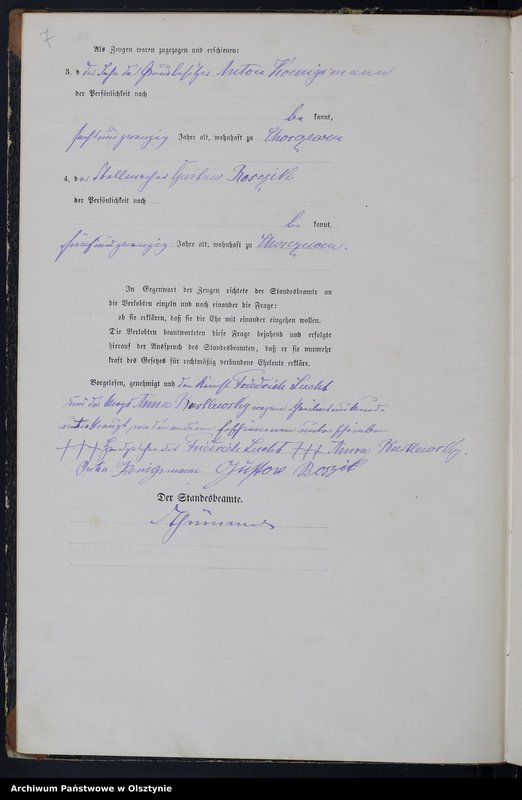 7
Als Zeugen waren zugezogen und erschienen:
3. der Sohn des Grundbesitzer Anton Koenigsmann
der Persönlichkeit nach
be kannt,
sechsundzwanzig Jahre alt, wohnhaft zu
4. der Stellmacher Gustav
der Persönlichkeit nach
be kannt,
fünfundzwanzig Jahre alt, wohnhaft zu
In Gegenwart der Zeugen richtete der Standesbeamte an
die Verlobten einzeln und nach einander die Frage:
ob sie erklären, daß sie die Ehe mit einander eingehen wollen.
Die Verlobten beantworteten diese Frage bejahend und erfolgte
hierauf der Ausspruch des Standesbeamten, daß er sie nunmehr
kraft des Gesetzes für rechtmäßig verbundene Eheleute erkläre.
Vorgelesen, genehmigt und Friedrich Lucht
und der Magd Anna wegen
unterkreuzt, von den anderen Erschienenen unterschrieben
+++ Handzeichen des Friedrich Lucht +++ Anna
Anton Königsmann Gustow
Der Standesbeamte.
Archiwum Państwowe w Olsztynie